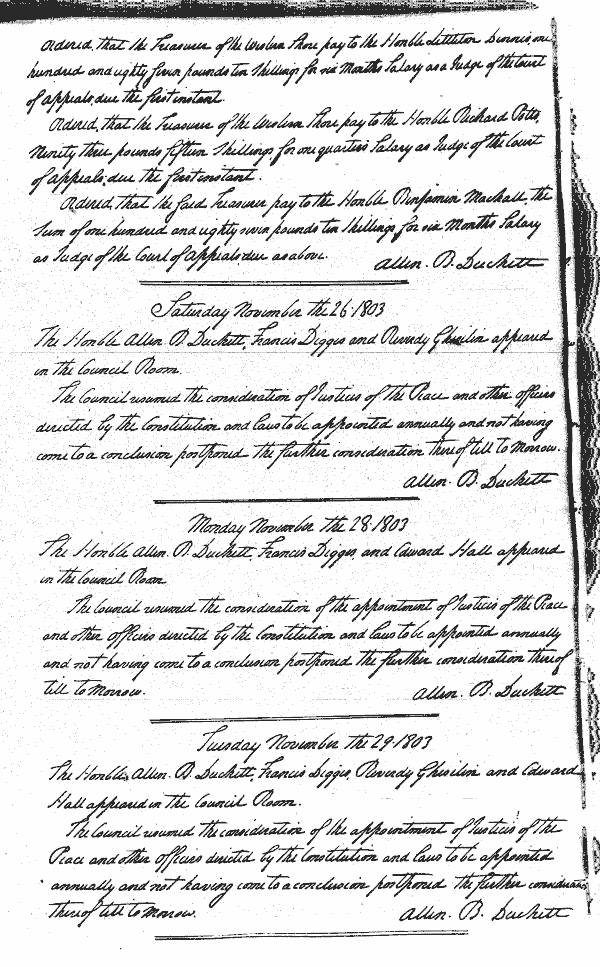 Ordered, that the Treasurer of the Western Shore pay to the Honble Littleton Dennis, one
hundred and eighty seven pounds ten Shillings for six Months Salary as a Judge of the Court
of appeals, due the first instant.
Ordered, that the Treasurer of the Western Shore pay to the Honble Richard Potts,
Ninety three pounds fifteen Shillings for one quarter's Salary as Judge of the Court
of appeals, due the first instant.
Ordered, that the said Treasurer pay to the Honble Benjamin Mackall, the
Sum of one hundred and eighty seven pounds ten Shillings for six Months Salary
as Judge of the Court of Appeals, due as above.
Allen. B. Duckett
Saturday November the 26. 1803
The Honble Allen. B. Duckett, Francis Digges and Reverdy Ghiselin appeared
in the Council Room.
The Council resumed the consideration of Justices of the Peace and other officers
directed by the Constitution and laws to be appointed annually and not having
come to a conclusion postponed the further consideration thereof till to Morrow.
Allen. B. Duckett
Monday November the 28. 1803
The Honble Allen. B. Duckett, Francis Digges, and Edward Hall appeared
in the Council Room
The Council resumed the consideration of the appointment of Justices of the Peace
and other officers directed by the Constitution and laws to be appointed annually
and not having come to a conclusion postponed the further consideration thereof
till to Morrow.
Allen. B. Duckett
Tuesday November the 29. 1803
The Honble, Allen. B. Duckett, Francis Digges, Reverdy Ghiselin and Edward
Hall appeared in the Council Room.
The Council resumed the consideration of the appointment of Justices of the
Peace and other officers directed by the Constitution and laws to be appointed
annually and not having come to a conclusion postponed the further consideration
thereof till to Morrow.
Allen. B. Duckett